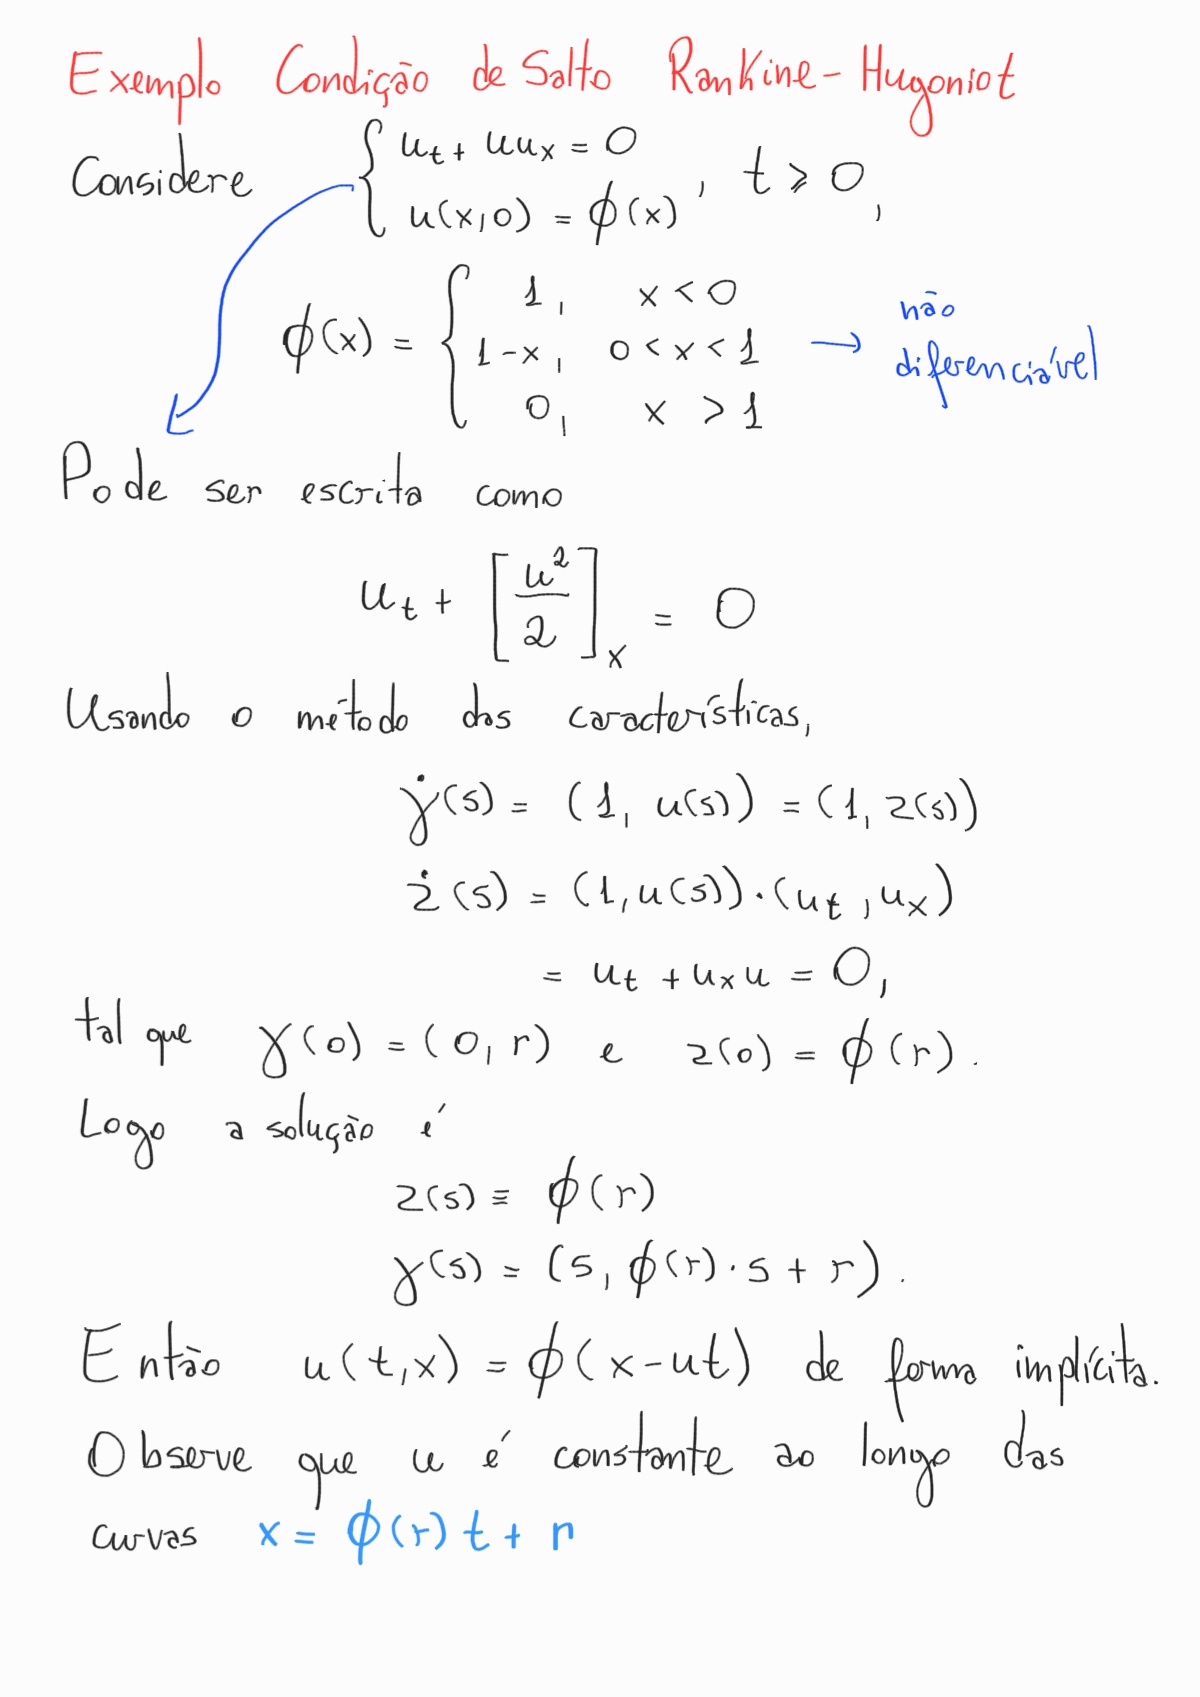 Exemplo Condição de Salto Rankine-Hugoniot
Considere { u_t + uu_x = 0
u(x,0) = ϕ(x) , t ⩾ 0,
ϕ(x) = { 1, x < 0
1-x, 0 < x < 1 → não diferenciável
0, x > 1
Pode ser escrita como
u_t + [u²/2]_x = 0
Usando o método das características,
γ̇(s) = (1, u(s)) = (1, z(s))
ż(s) = (1, u(s))·(u_t, u_x)
= u_t + u_x u = 0,
tal que γ(0) = (0, r) e z(0) = ϕ(r).
Logo a solução é
z(s) ≡ ϕ(r)
γ(s) = (s, ϕ(r)·s + r).
Então u(t,x) = ϕ(x-ut) de forma implícita.
Observe que u é constante ao longo das
curvas x = ϕ(r) t + r